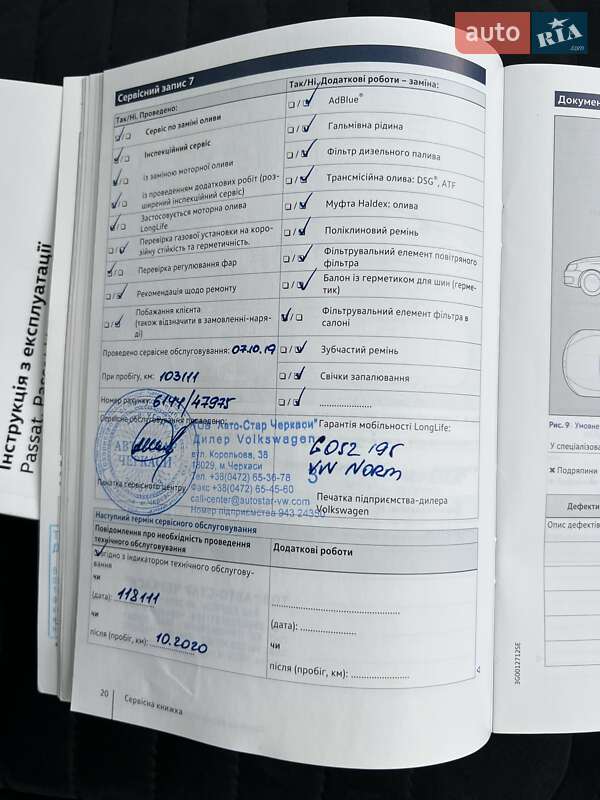 auto RIA .com
Інструкція з експлуатації
Passat, Passat
Сервісний запис 7
Так/Ні, Проведено:
☑/☐ Сервіс по заміні оливи
☑/☐ Інспекційний сервіс
☑/☐ із заміною моторної оливи
☑/☐ із проведенням додаткових робіт (роз-
ширений інспекційний сервіс)
☑/☐ Застосовується моторна олива
LongLife
☐/☑ Перевірка газової установки на коро-
зійну стійкість та герметичність.
☑/☐ Перевірка регулювання фар
☐/☑ Рекомендація щодо ремонту
☐/☑ Побажання клієнта
(також відзначити в замовленні-наря-
ді)
Проведено сервісне обслуговування: 07.10.19
При пробігу, км: 103111
Номер рахунку: 6144/47975
Сервісне обслуговування проведено:
Печатка сервісного центру
Так/Ні, Додаткові роботи – заміна:
☐/☑ AdBlue®
☐/☑ Гальмівна рідина
☐/☑ Фільтр дизельного палива
☐/☑ Трансмісійна олива: DSG®, ATF
☐/☑ Муфта Haldex: олива
☐/☑ Поліклиновий ремінь
☐/☑ Фільтрувальний елемент повітряного
фільтра
☐/☑ Балон із герметиком для шин (герме-
тик)
☑/☐ Фільтрувальний елемент фільтра в
салоні
☐/☑ Зубчастий ремінь
☐/☑ Свічки запалювання
☐/☑ ......................
Гарантія мобільності LongLife:
G052 195
VW NORM
Печатка підприємства-дилера
Volkswagen
АВТО
ЧЕРКАСИ
ТОВ "Авто-Стар Черкаси"
Дилер Volkswagen
вул. Корольова, 38
18029, м.Черкаси
Тел.+38(0472) 65-36-78
Факс +38(0472) 65-45-60
call-center@autostar-vw.com
Номер підприємства 943 24350
Наступний термін сервісного обслуговування
Повідомлення про необхідність проведення
технічного обслуговування
Згідно з індикатором технічного обслугову-
вання
чи
(дата): 118111
чи
після (пробіг, км): 10.2020
Додаткові роботи
(дата): ................
чи
після (пробіг, км): ................
20 Сервісна книжка
Докумен
Рис. 9 Умовне
У спеціалізова
✖ Подряпини
Дефекти
Опис дефектів
3G0012712SE